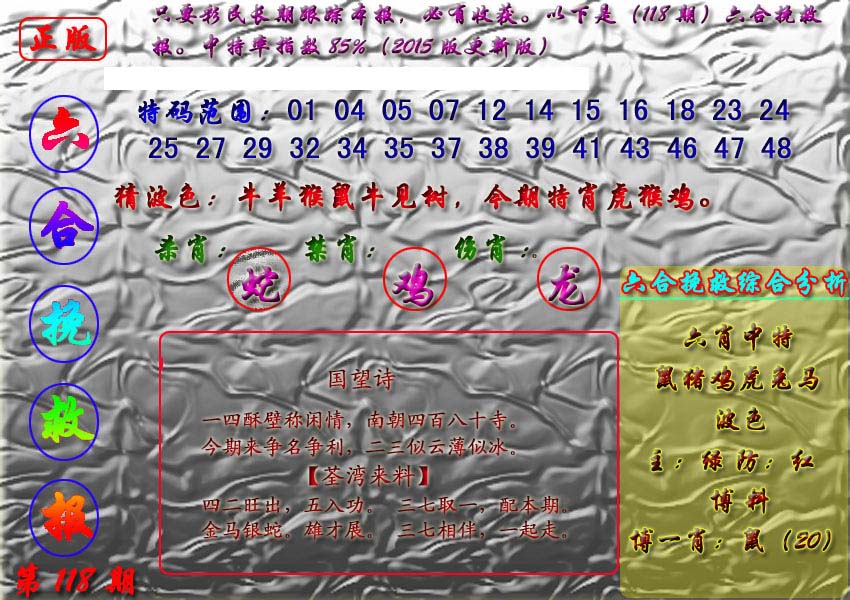 正版
只要彩民长期跟踪本报，必有收获。以下是（118期）六合挽救
报。中特率指数85%（2015版更新版）
六合挽救报
第118期
特码范围：01 04 05 07 12 14 15 16 18 23 24
25 27 29 32 34 35 37 38 39 41 43 46 47 48
猜波色：牛羊猴鼠牛见树，今期特肖虎猴鸡。
杀肖：蛇 禁肖：鸡 伤肖：龙
国望诗
一四酥壁称闲情，南朝四百八十寺。
今期来争名争利，二三似云薄似冰。
【荃湾来料】
四二旺出，五入功。 三七取一，配本期。
金马银蛇。雄才展。 三七相伴，一起走。
六合挽救综合分析
六肖中特
鼠猪鸡虎兔马
波色
主：绿防：红
博料
博一肖：鼠（20）